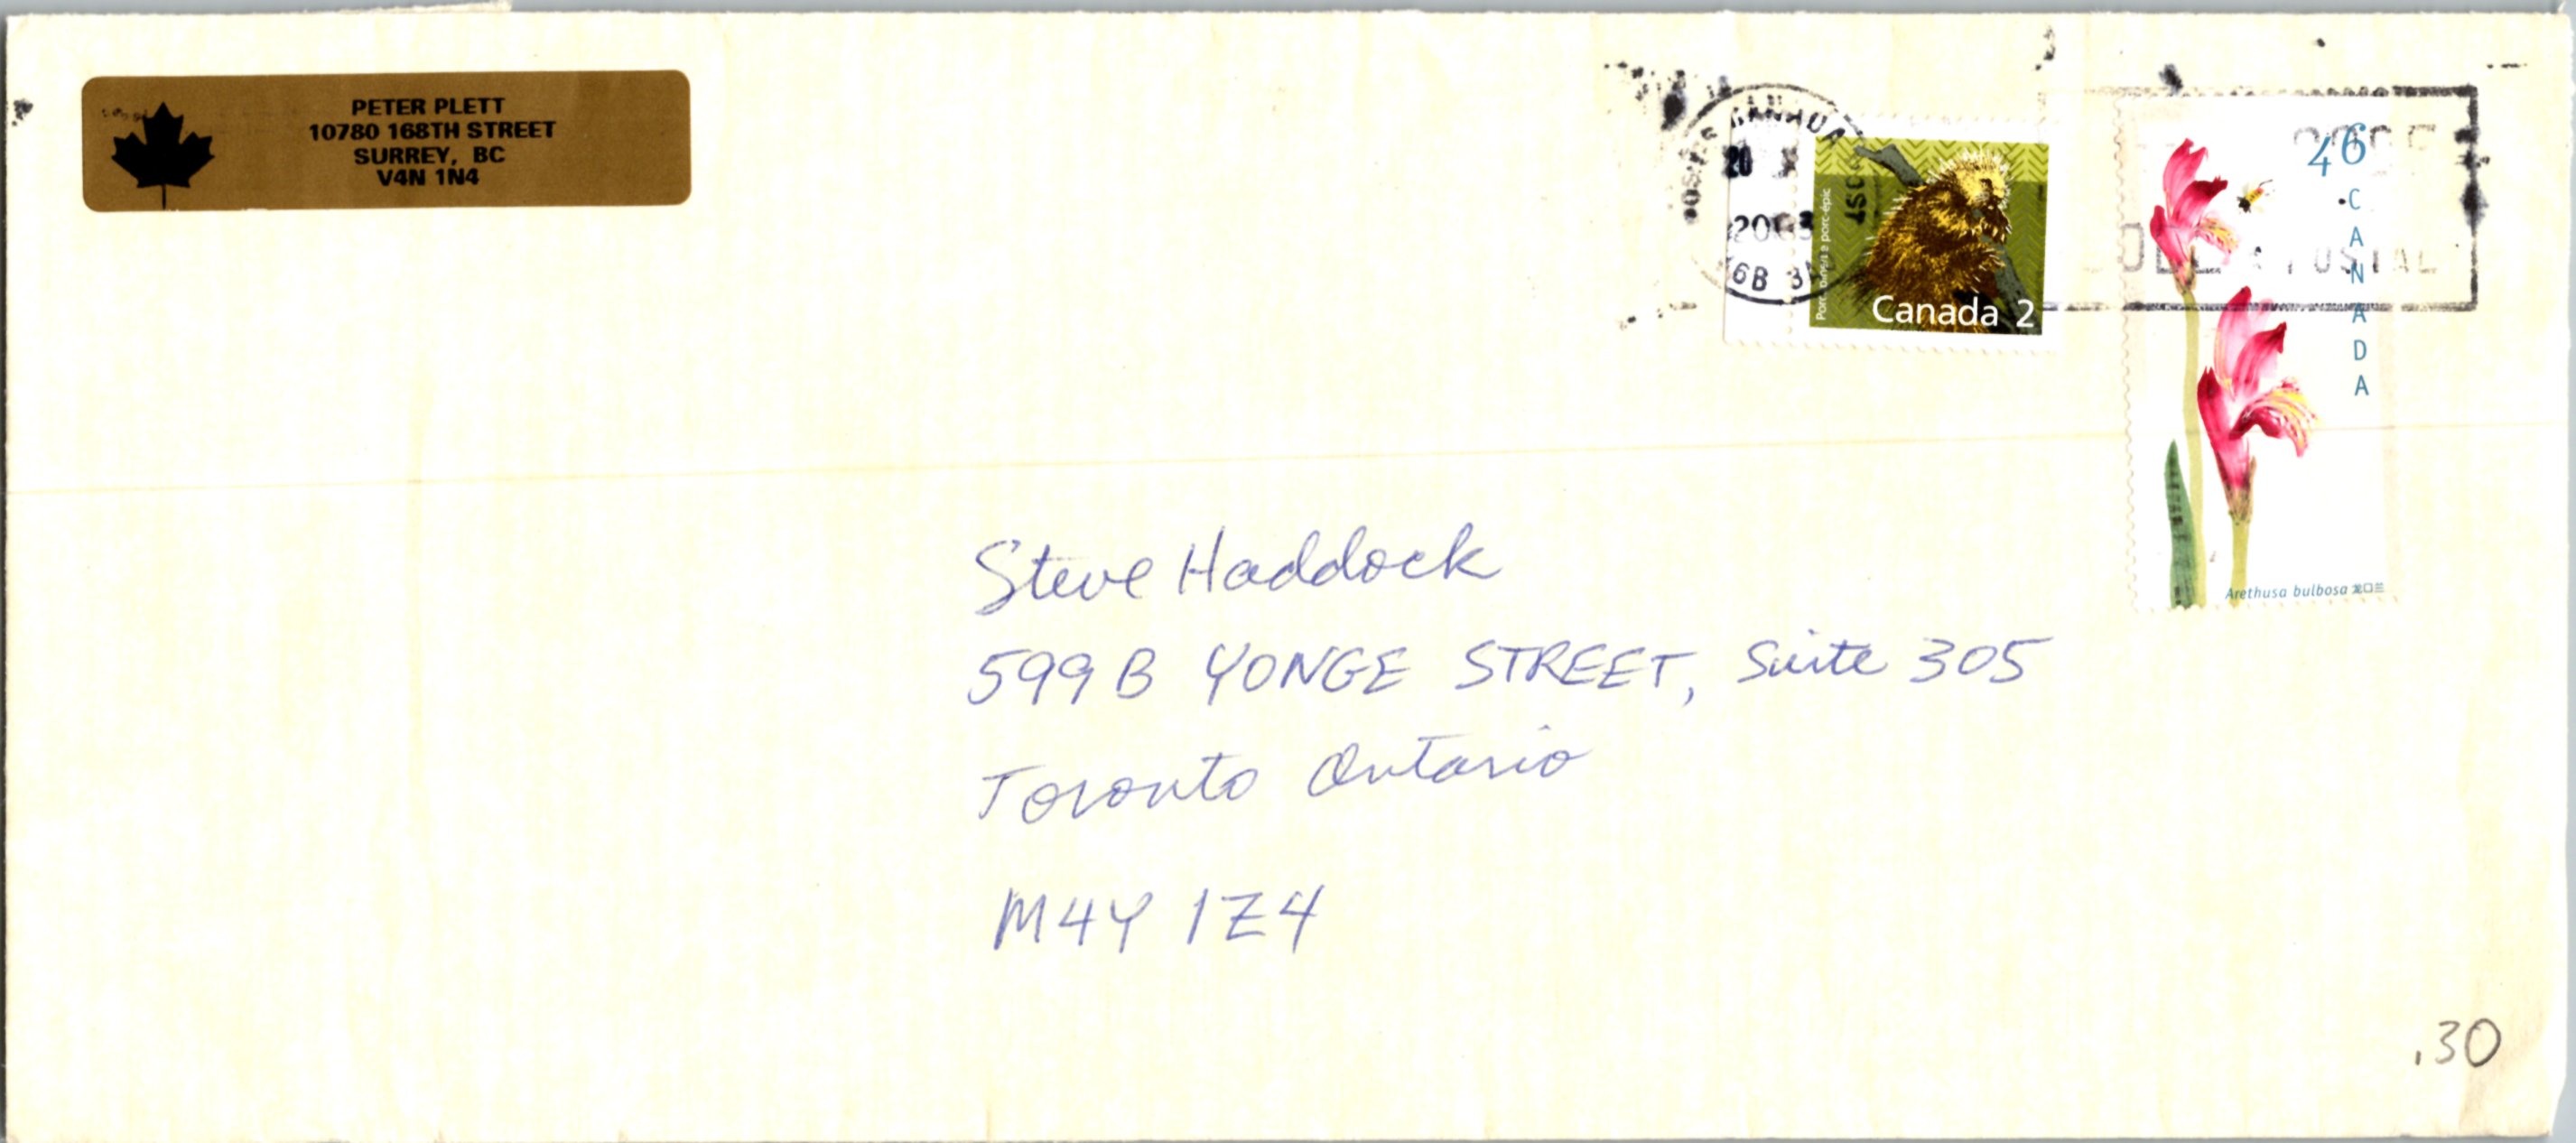 PETER PLETT
10780 168TH STREET
SURREY, BC
V4N 1N4
CANADA
20
Canada 2
46
CANADA
POSTAL
Arethusa bulbosa
Steve Haddock
599B YONGE STREET, Suite 305
Toronto Ontario
M4Y 1Z4
.30